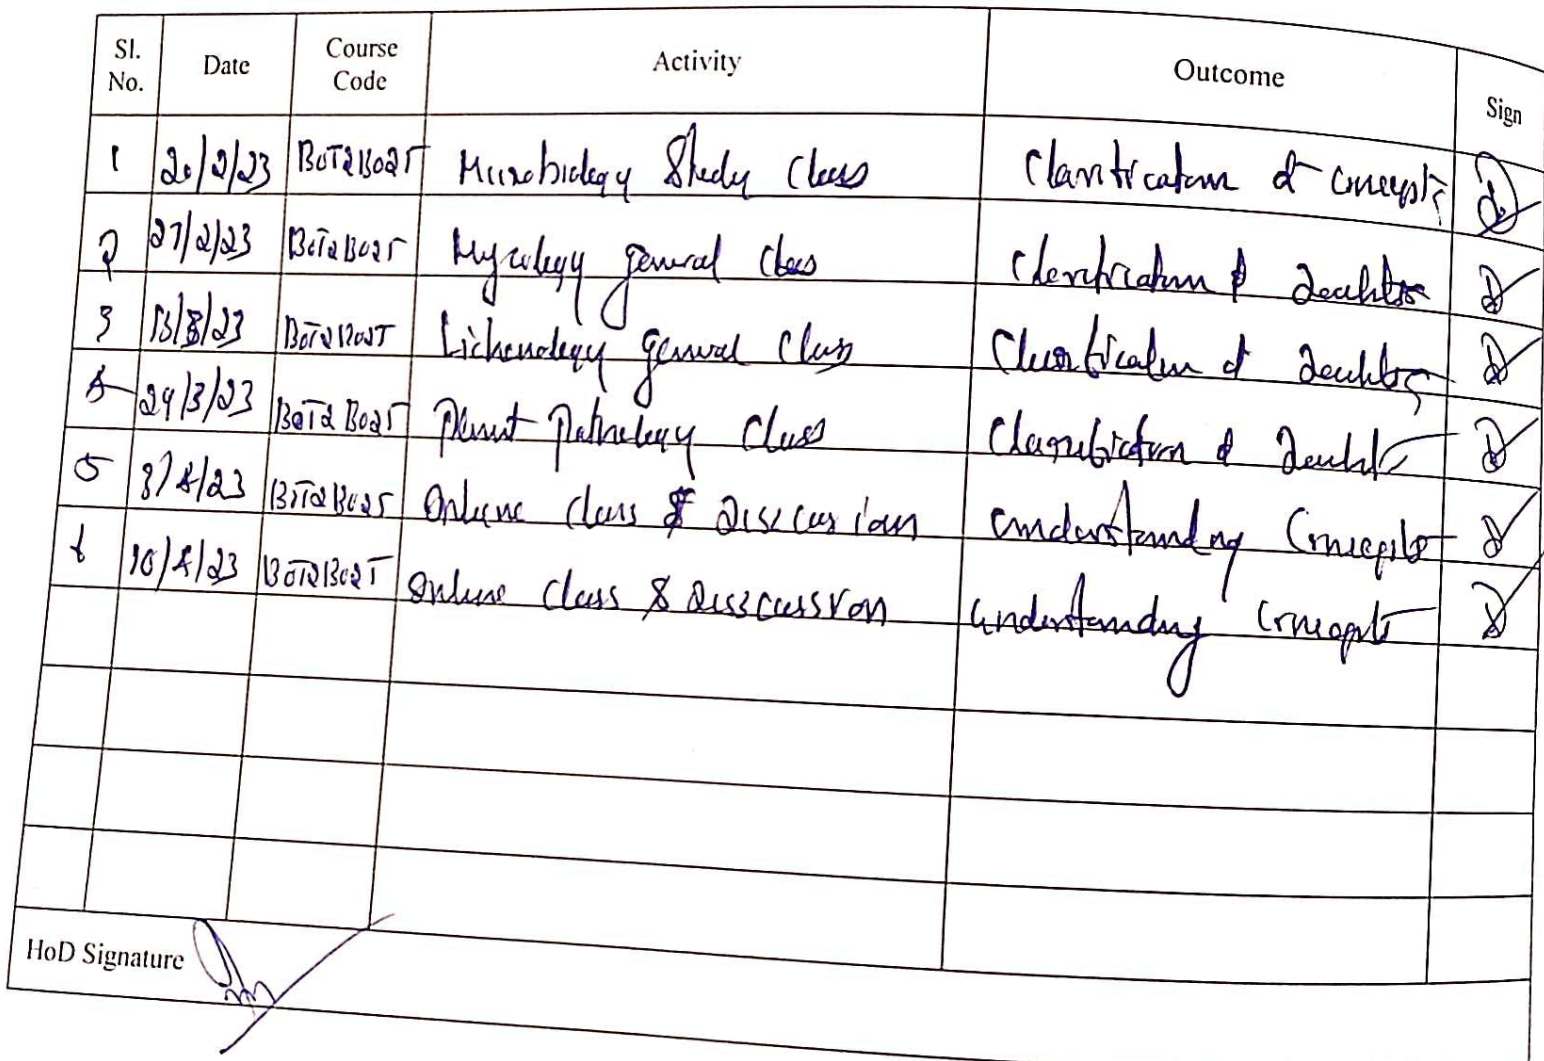 Sl. No. Date Course Code Activity Outcome Sign
1 20/2/23 BOT2B02T Microbiology Study Class Clarification of concepts
2 27/2/23 BOT2B02T Mycology general Class Clarification of doubts
3 13/3/23 BOT2B02T Lichenology general Class Clarification of doubts
4 29/3/23 BOT2B02T Plant Pathology Class Clarification of doubts
5 3/4/23 BOT2B02T Online Class & Discussion understanding Concepts
6 10/4/23 BOT2B02T Online Class & Discussion understanding Concepts
HoD Signature